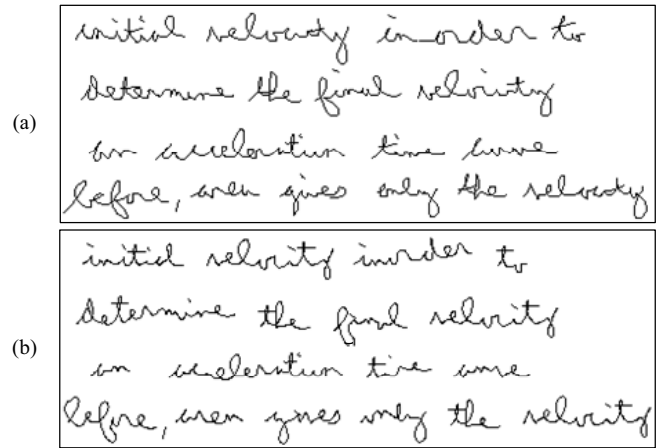 (a)
initial velocity in order to
determine the final velocity
an acceleration time curve
before, area gives only the velocity
(b)
initial velocity in order to
determine the final velocity
an acceleration time curve
before, area gives only the velocity